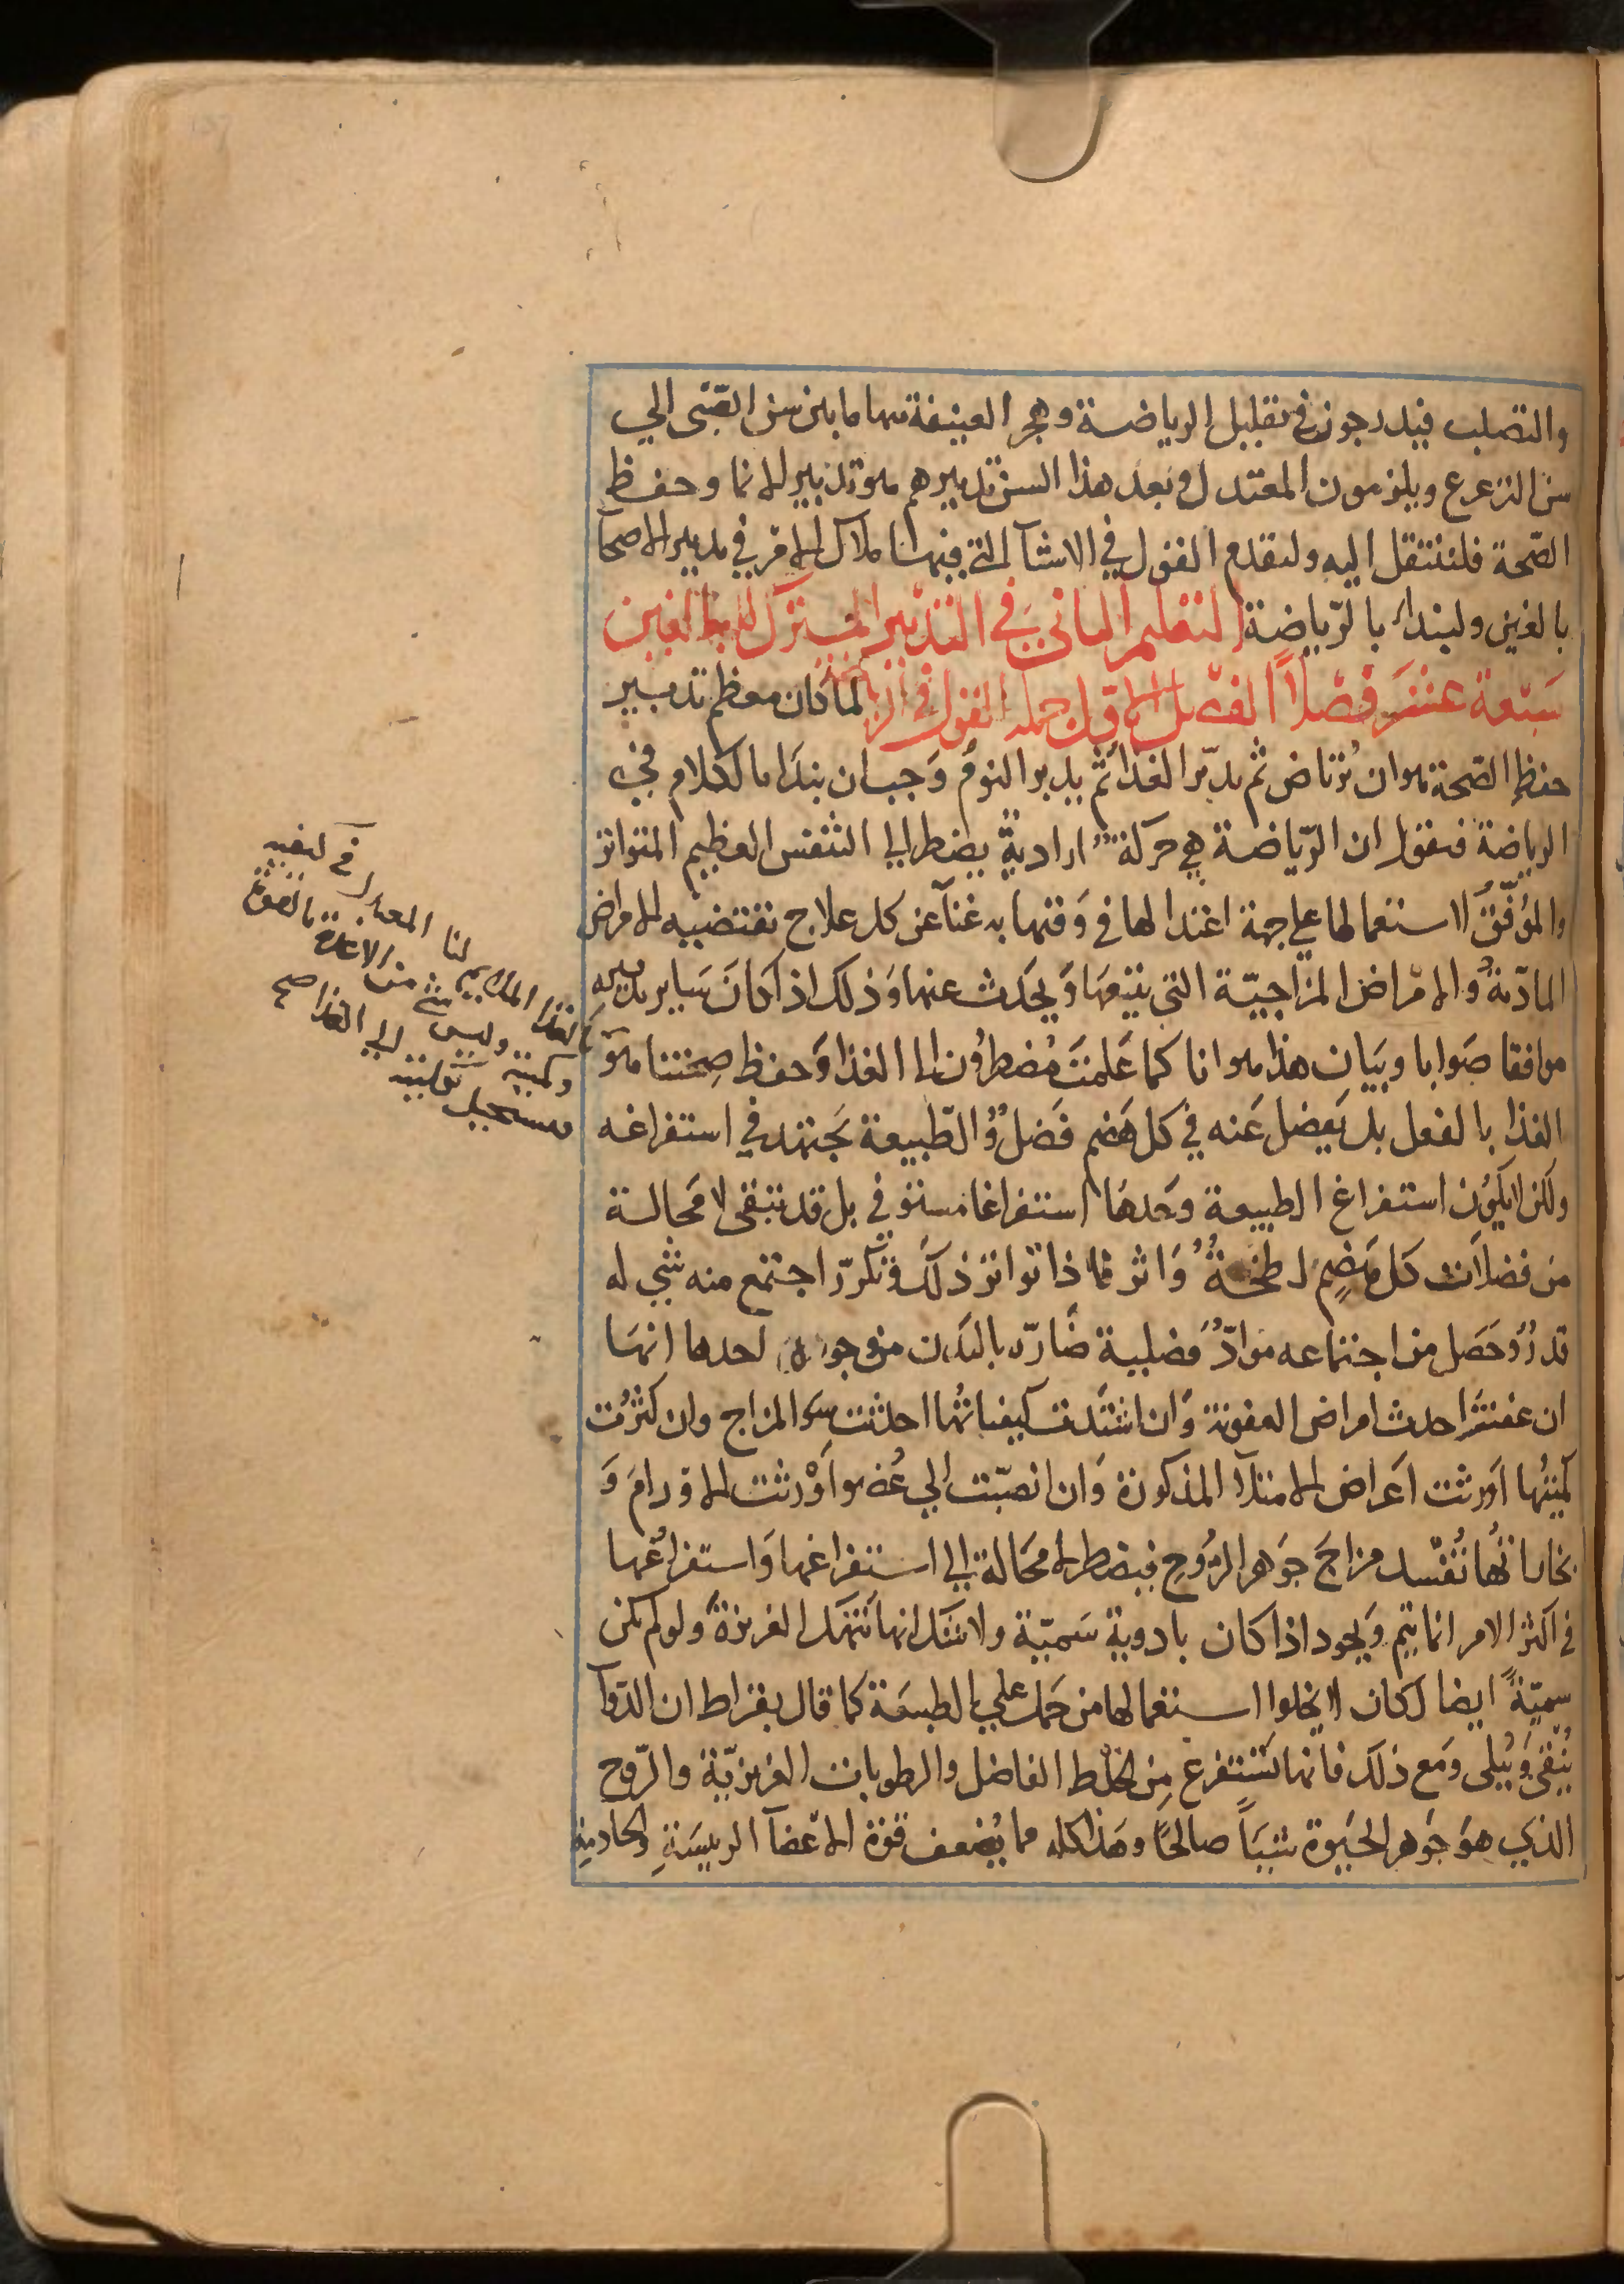 والتصلب فيدرجون في تقليل الرياضة وهجر العنيفة منها ما بين سن الصبى الي
سن الترعرع ويلزمون المعتدل وبعد هذا السن تدبيرهم هو تدبير الانما وحفظ
الصّحة فلننتقل اليه ولنقدم القول في الاشيآ التي فيها ملاك الامر في تدبير الاصحآ
بالغين ولنبدا بالرّياضة التعليم الثاني في التدبير المشترك للبالغين
سَبْعة عشر فصْلاً الفصْل الاوّل جملة القول في الرياضة لما كان معظم تدبير
حفظ الصّحة هو ان يُرتاض ثم يدبّر الغذا ثمّ يدبر النومُ وَجب ان نبدَا بالكلام في
الرياضة فنقول ان الرّياضة هي حركة اراديةٌ يضطر الي التنفس العظيم المتواتر
والموُفّق لاستعمالها علي جهة اعتدالها في وَقتها به غنآ عن كل علاج تقتضيه الامراض
المادّيةُ والامْراض المزاجيّة التي تتبعهَا وَيحَدث عنها وَذلك اذا كانَ سَاير تدبيره
موافقا صَوابا وبَيان هذا هو انا كما عَلمتَ مُضطرُون الي الغذا وَحفظ صِحتنا هوَ
الغذا بالفعل بل يَفضل عَنه في كل هَضم فَضلٌ والطّبيعة تجَتهد في استفراغه
ولكن لا يَكوُن استفراغ الطبيعة وَحدهَا استفراغا مستوفي بل قد تبقى لا محَالة
من فضلاَت كل هَضم لطخَةٌ وَاثر فاذا تواتر ذلكَ وتكرّر اجتمع منه شي له
قدرٌ وَحَصَل من اجتماعه موادّ فضلية ضَارّه بالبَدن من وجوه احدها انهَا
ان عفنَت احدث امراض العفونة وَان اشتدت كيفياتُها احدثت سُو المزاج وان كثرُت
كميّتُها اَورثت اَعراض الامتلآ المذكورة وَان انصَبّت الي عُضو اَوْرثت الاورامَ وَ
بخاراتُها تُفسْد مزاجَ جوَهر الرّوُحِ فيضطر لا محَالة الي استفراغها وَاستفراغُها
في اكثر الامر انما يتم وَيجود اذا كان بادوية سَميّة ولا شك انها تنَهك الغريزةَ ولو لم تكن
سميّةً ايضا لكان لا يخلوا استعمالها من حَمل علي الطبيعَة كما قال بقراط ان الدّوآ
يُنْقي وَيُبلى وَمع ذلكَ فانها تستفرغ مِن الخلط الفاضل والرطوبات الغريزيّة والرّوح
الذي هوَ جَوهر الحَيوة شيَياً صالحًا وهَذا كله مما يُضعف قوّة الاعضآ الرييسَةِ والخادمةِ
لنا
الغذا الملايم
وكميته وليس شي من الاغذية بالقوة
يستحيل بكليته الي الغذا